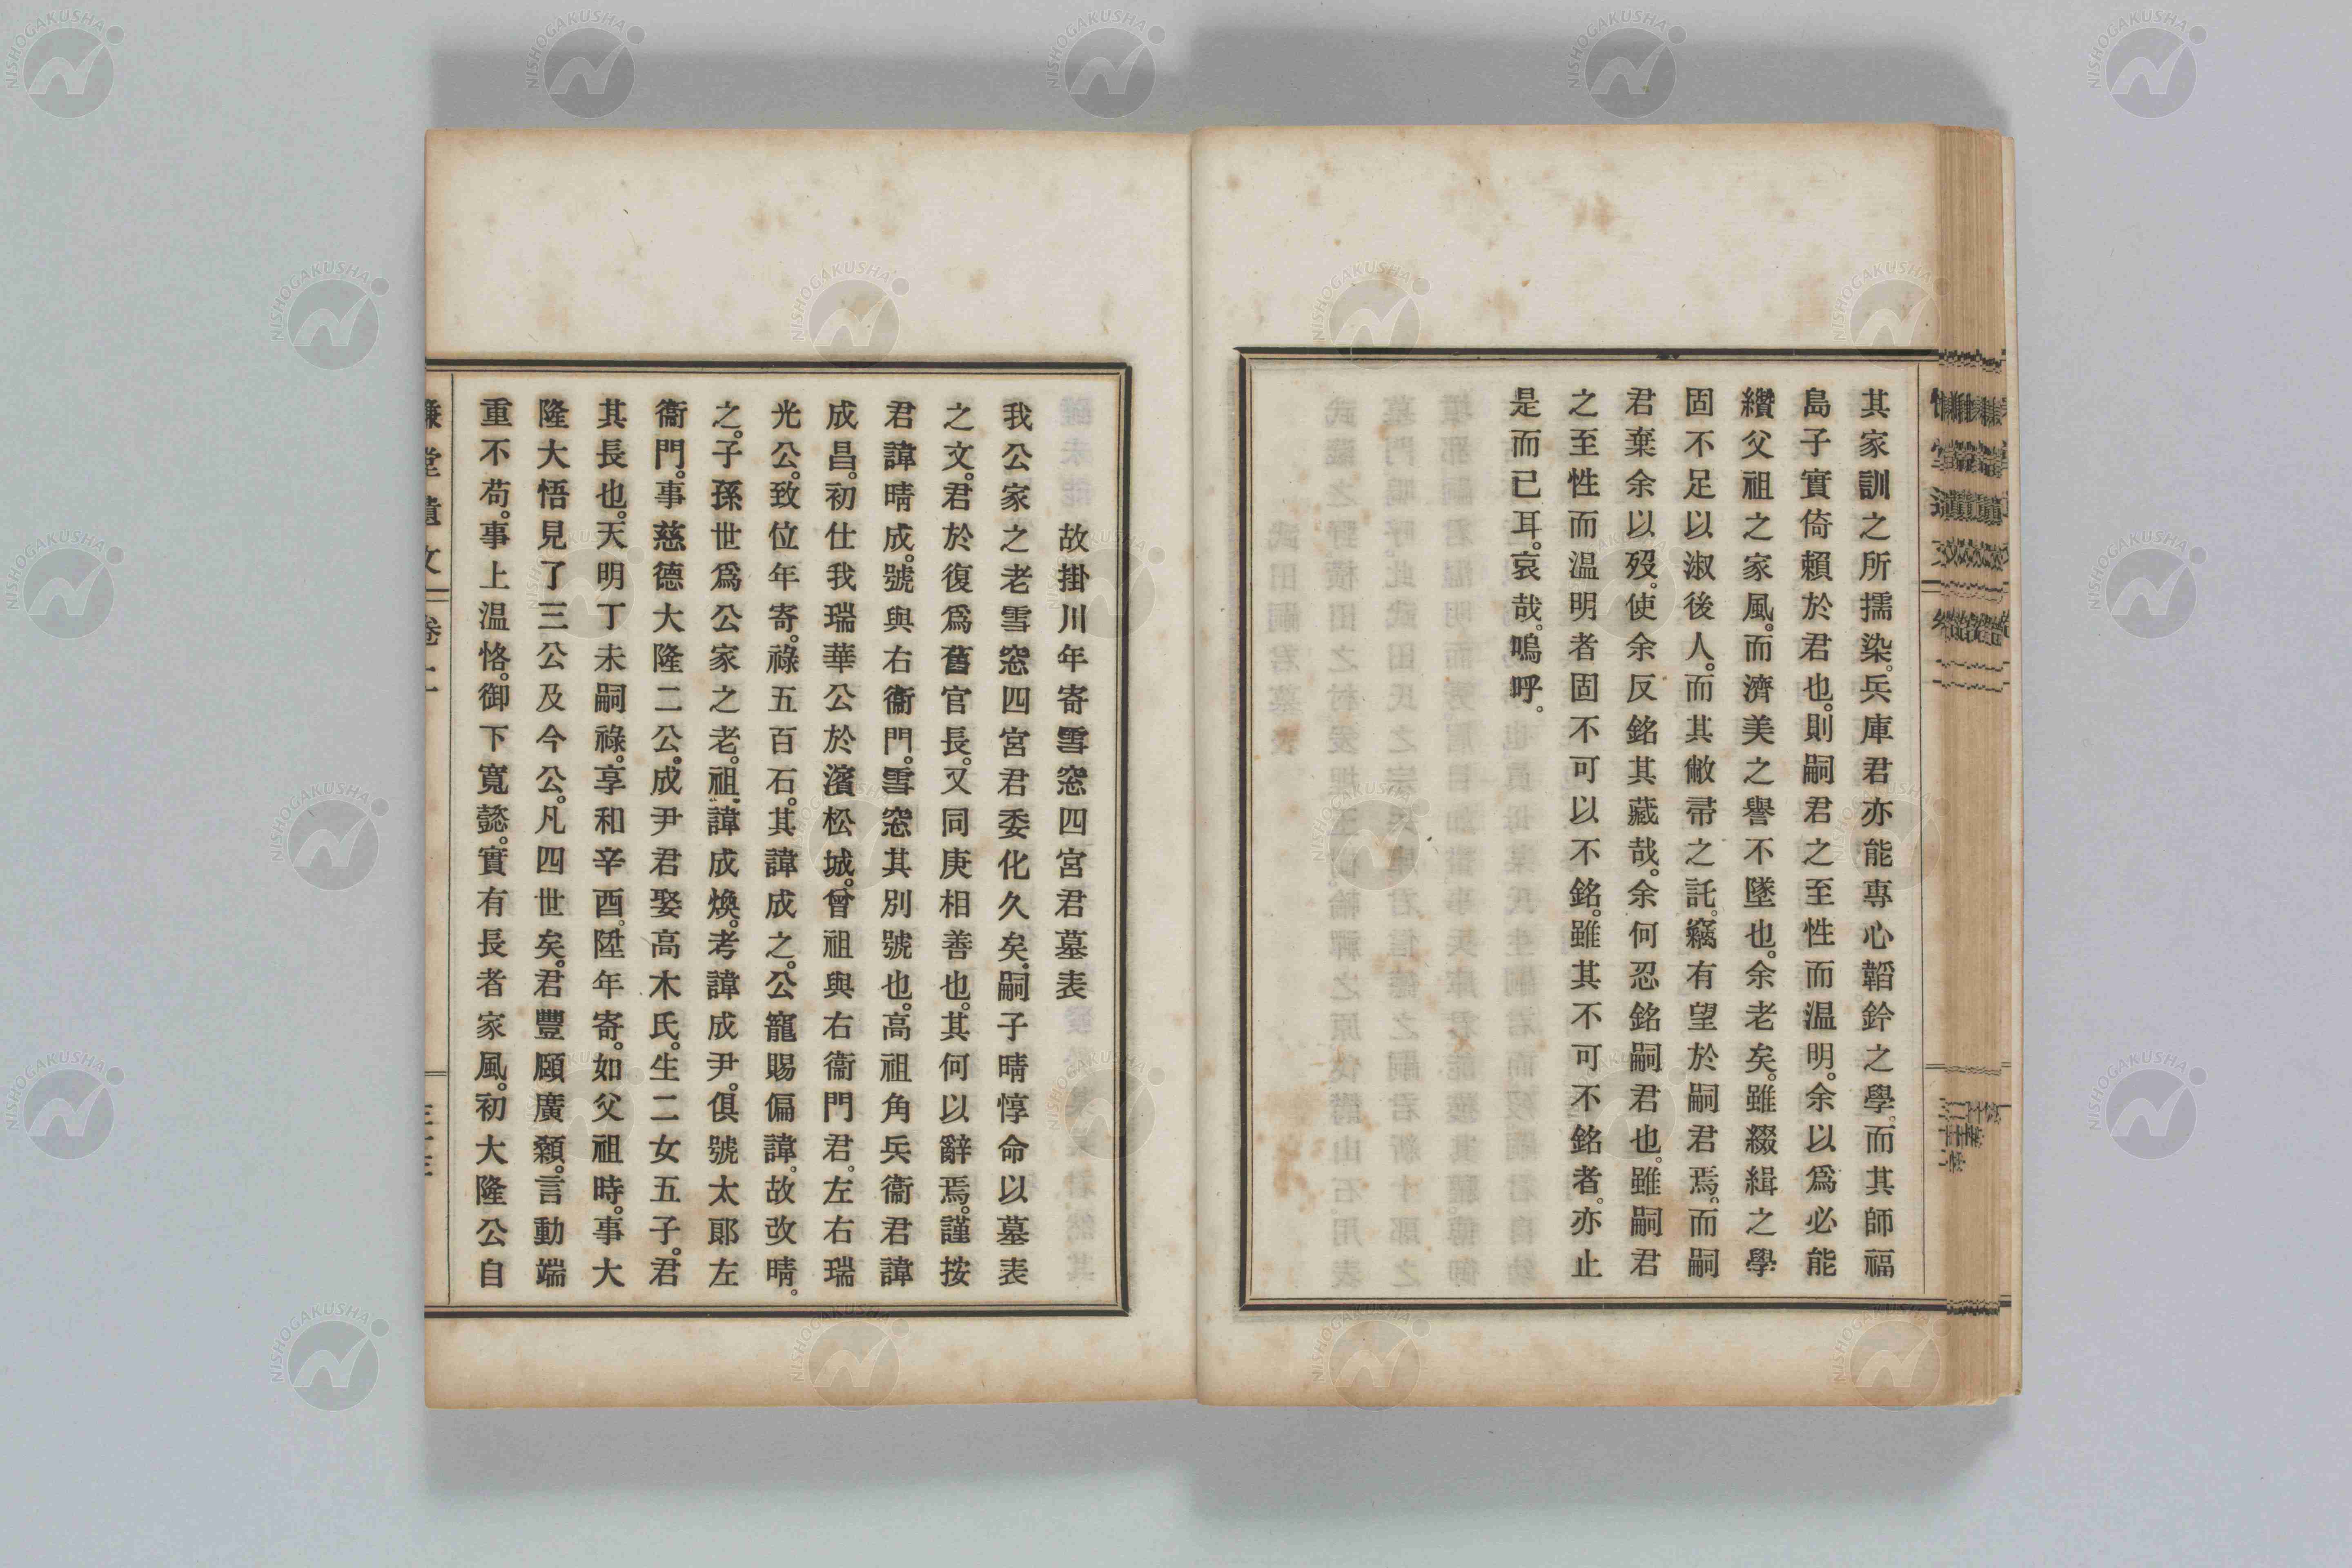 其家訓之所擩染。兵庫君亦能專心韜鈐之學。而其師福
島子實倚賴於君也。則嗣君之至性而温明。余以爲必能
纘父祖之家風。而濟美之譽不墜也。余老矣。雖綴緝之學
固不足以淑後人。而其敝帚之託。竊有望於嗣君焉。而嗣
君棄余以歿。使余反銘其藏哉。余何忍銘嗣君也。雖嗣君
之至性而温明者固不可以不銘。雖其不可不銘者。亦止
是而已耳。哀哉。嗚呼。
故掛川年寄雪窓四宮君墓表
我公家之老雪窓四宮君委化久矣。嗣子晴惇命以墓表
之文。君於復爲舊官長。又同庚相善也。其何以辭焉。謹按
君諱晴成。號與右衞門。雪窓其別號也。高祖角兵衞君諱
成昌。初仕我瑞華公於濱松城。曾祖與右衞門君。左右瑞
光公。致位年寄。祿五百石。其諱成之。公寵賜偏諱。故改晴。
之。子孫世爲公家之老。祖諱成煥。考諱成尹。俱號太郞左
衞門。事慈德大隆二公。成尹君娶高木氏。生二女五子。君
其長也。天明丁未嗣祿。享和辛酉。陞年寄。如父祖時。事大
隆大悟見了三公及今公。凡四世矣。君豐頤廣顙。言動端
重不苟。事上温恪。御下寬懿。實有長者家風。初大隆公自
慊堂遺文 卷上